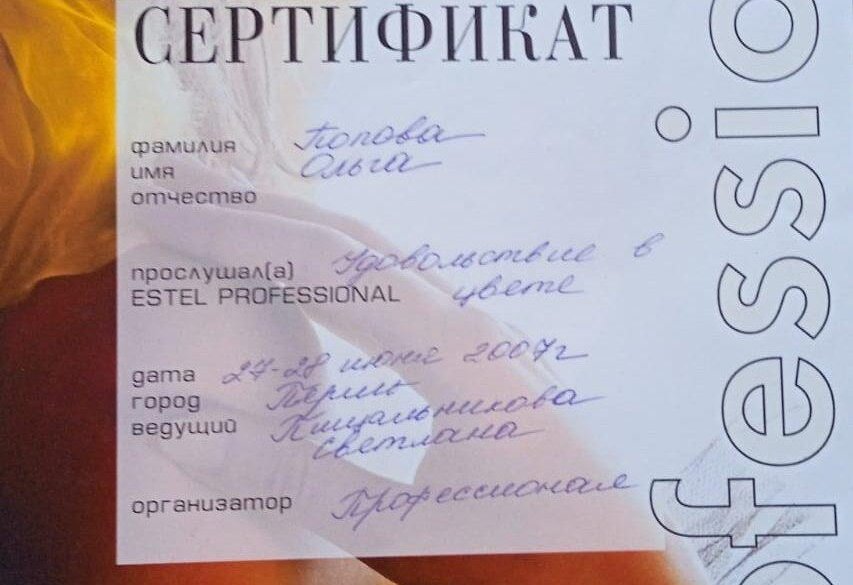 СЕРТИФИКАТ
фамилия Попова
имя Ольга
отчество
прослушал(а) Удовольствие в
ESTEL PROFESSIONAL цвете
дата 27-28 июня 2007г
город Пермь
ведущий Пищальникова
Светлана
организатор Профессионал
ofessio